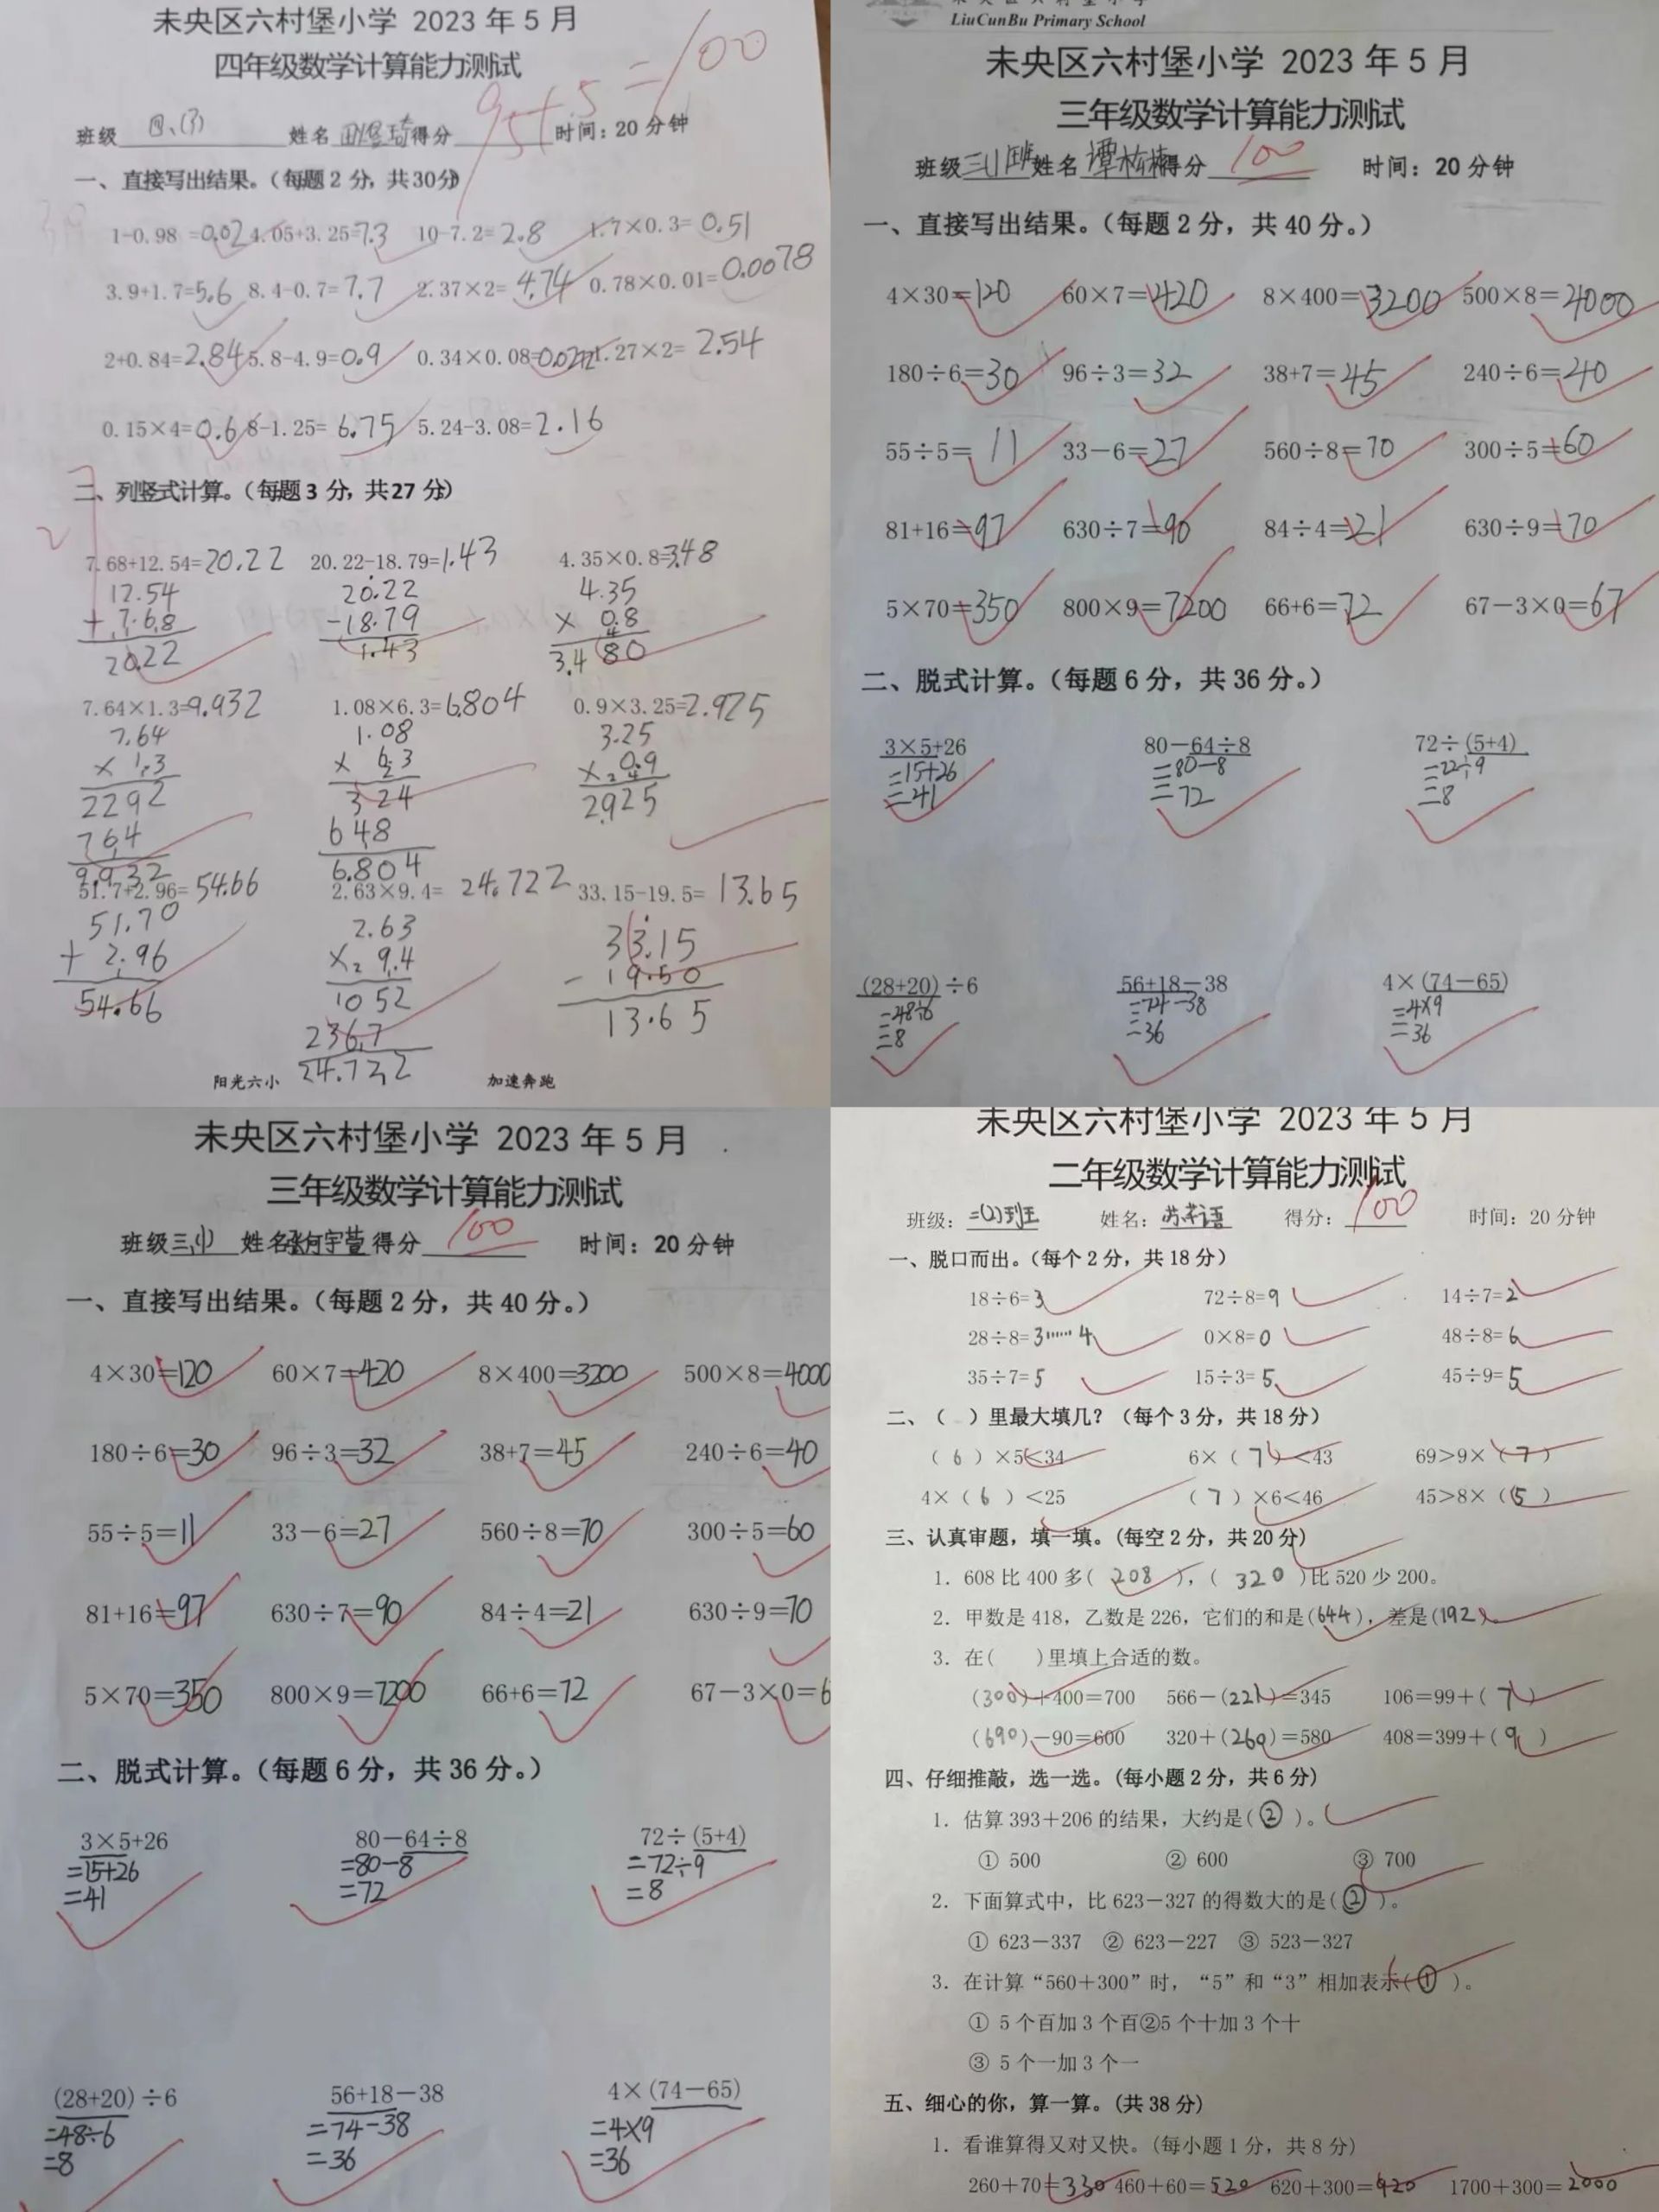 未央区六村堡小学 2023年5月
四年级数学计算能力测试
95+5=100
班级 四、(3) 姓名 得分 时间：20分钟
一、直接写出结果。（每题2分，共30分）
1-0.98 =0.02 4.05+3.25=7.3 10-7.2=2.8 1.7×0.3=0.51
3.9+1.7=5.6 8.4-0.7=7.7 2.37×2=4.74 0.78×0.01=0.0078
2+0.84=2.84 5.8-4.9=0.9 0.34×0.08= 1.27×2=2.54
0.15×4=0.6 8-1.25=6.75 5.24-3.08=2.16
二、列竖式计算。（每题3分，共27分）
7.68+12.54=20.22 20.22-18.79=1.43 4.35×0.8=3.48
12.54 20.22 4.35
+7.68 -18.79 × 0.8
20.22 1.43 3.480
7.64×1.3=9.932 1.08×6.3=6.804 0.9×3.25=2.925
7.64 1.08 3.25
× 1.3 × 6.3 × 0.9
2292 324 2.925
764 648
9.932 6.804
51.7+2.96=54.66 2.63×9.4=24.722 33.15-19.5=13.65
51.70 2.63 33.15
+ 2.96 × 9.4 - 19.50
54.66 1052 13.65
2367
24.722
阳光六小 加速奔跑
LiuCunBu Primary School
未央区六村堡小学 2023年5月
三年级数学计算能力测试
班级 三(1)班 姓名 谭栎楠 得分 100 时间：20分钟
一、直接写出结果。（每题2分，共40分。）
4×30=120 60×7=420 8×400=3200 500×8=4000
180÷6=30 96÷3=32 38+7=45 240÷6=40
55÷5=11 33-6=27 560÷8=70 300÷5=60
81+16=97 630÷7=90 84÷4=21 630÷9=70
5×70=350 800×9=7200 66+6=72 67-3×0=67
二、脱式计算。（每题6分，共36分。）
3×5+26 80-64÷8 72÷(5+4)
=15+26 =80-8 =72÷9
=41 =72 =8
(28+20)÷6 56+18-38 4×(74-65)
=48÷6 =74-38 =4×9
=8 =36 =36
未央区六村堡小学 2023年5月
三年级数学计算能力测试
班级 三(1) 姓名 得分 100 时间：20分钟
一、直接写出结果。（每题2分，共40分。）
4×30=120 60×7=420 8×400=3200 500×8=4000
180÷6=30 96÷3=32 38+7=45 240÷6=40
55÷5=11 33-6=27 560÷8=70 300÷5=60
81+16=97 630÷7=90 84÷4=21 630÷9=70
5×70=350 800×9=7200 66+6=72 67-3×0=6
二、脱式计算。（每题6分，共36分。）
3×5+26 80-64÷8 72÷(5+4)
=15+26 =80-8 =72÷9
=41 =72 =8
(28+20)÷6 56+18-38 4×(74-65)
=48÷6 =74-38 =4×9
=8 =36 =36
未央区六村堡小学 2023年5月
二年级数学计算能力测试
班级：二(2)班 姓名： 得分：100 时间：20分钟
一、脱口而出。（每个2分，共18分）
18÷6=3 72÷8=9 14÷7=2
28÷8=3……4 0×8=0 48÷8=6
35÷7=5 15÷3=5 45÷9=5
二、（ ）里最大填几？（每个3分，共18分）
（6）×5<34 6×（7）<43 69>9×（7）
4×（6）<25 （7）×6<46 45>8×（5）
三、认真审题，填一填。(每空2分，共20分)
1. 608比400多(208)，(320)比520少200。
2. 甲数是418，乙数是226，它们的和是(644)，差是(192)。
3. 在( )里填上合适的数。
(300)+400=700 566-(221)=345 106=99+(7)
(690)-90=600 320+(260)=580 408=399+(9)
四、仔细推敲，选一选。(每小题2分，共6分)
1. 估算393+206的结果，大约是(②)。
① 500 ② 600 ③ 700
2. 下面算式中，比623-327的得数大的是(②)。
① 623-337 ② 623-227 ③ 523-327
3. 在计算“560+300”时，“5”和“3”相加表示(①)。
① 5个百加3个百②5个十加3个十
③ 5个一加3个一
五、细心的你，算一算。(共38分)
1. 看谁算得又对又快。(每小题1分，共8分)
260+70=330 460+60=520 620+300=920 1700+300=2000